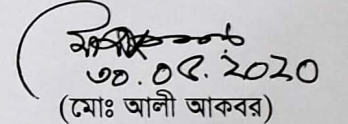 ৩০.০৫.২০২০
(মোঃ আলী আকবর)